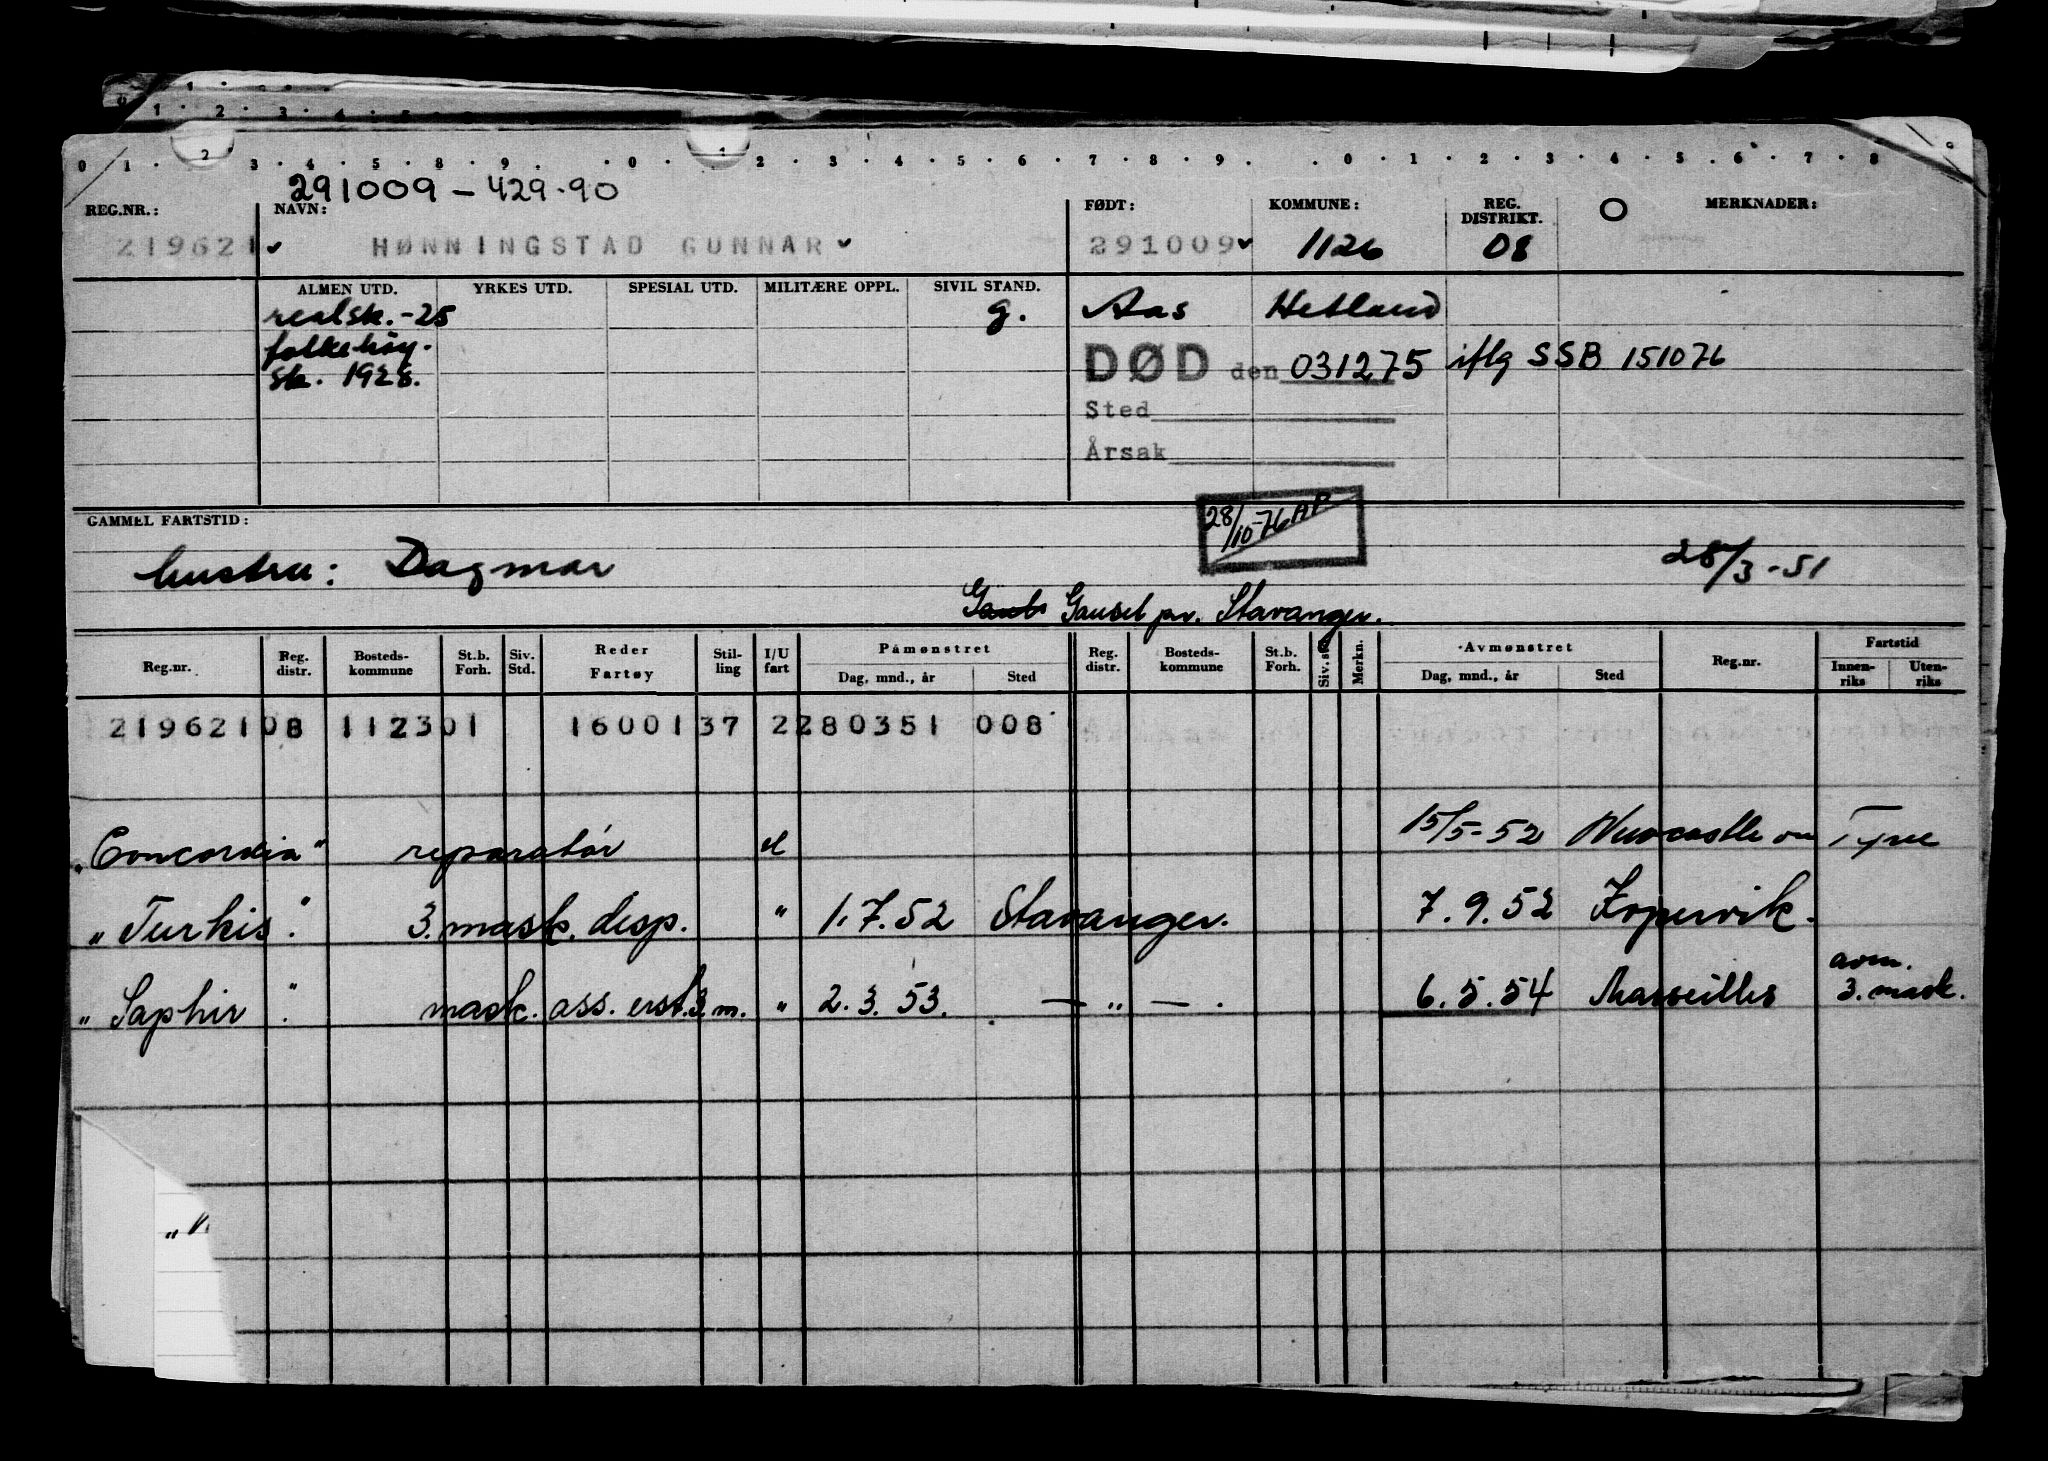 0 1 . 2 3 . 4 . 5 . 8 . 9 . . 0 . 1 2 . 3 . 4 . 5 . 6 . 7 . 8 . 9 . . 0 . 1 . 2 . 3 . 4 . 5 . 6 . 7 . 8 9
291009 - 429.90
REG.NR.: NAVN: FØDT: KOMMUNE: REG. DISTRIKT. O MERKNADER:
219621 HØNNINGSTAD GUNNAR 291009 1126 08
ALMEN UTD. YRKES UTD. SPESIAL UTD. MILITÆRE OPPL. SIVIL STAND.
realsk.-25 g. Aas Hetland
folkehøy-
sk. 1928.
DØD den 031275 iflg SSB 151076
Sted
Årsak
GAMMEL FARTSTID: 28/10-76 AP
hustru: Dagmar 28/3-51
Gausel pr. Stavanger.
Reg.nr. Reg. distr. Bosteds- kommune St.b. Forh. Siv. Std. Reder Fartøy Stil- ling I/U fart Påmønstret Dag, mnd., år Sted Reg. distr. Bosteds- kommune St.b. Forh. Siv. st. Merkn. Avmønstret Dag, mnd., år Sted Reg.nr. Fartstid Innen- riks Uten- riks
219621 08 1123 01 16001 37 2 280351 008
"Concordia" reparatør 15/5-52 Newcastle on Tyne
"Turkis". 3. mask. disp. " 1.7.52 Stavanger. 7.9.52 Kopervik.
"Saphir". mask. ass. erst. 3 m. " 2.3.53. — " — . 6.5.54 Marseilles avm. 3. mask.